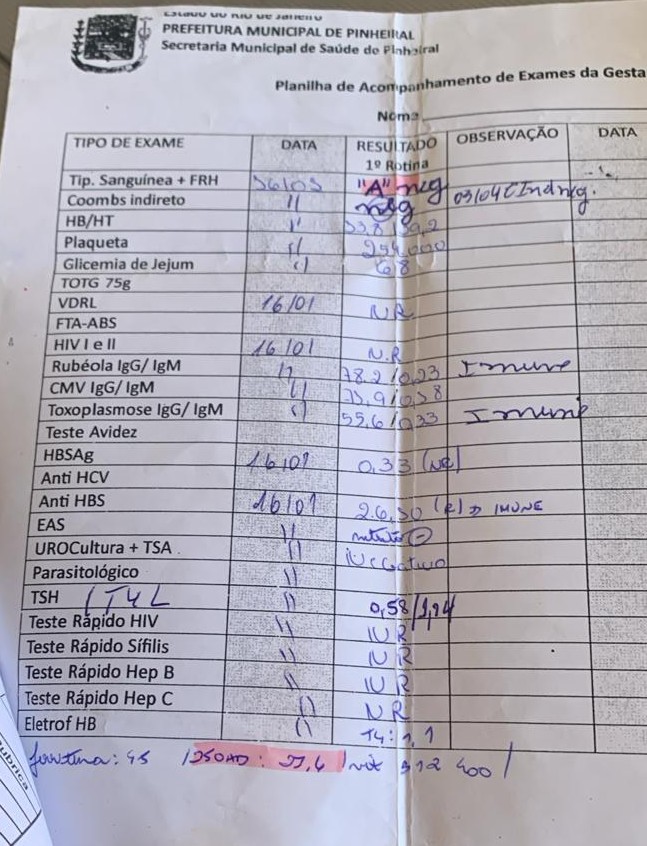 Estado do Rio de Janeiro
PREFEITURA MUNICIPAL DE PINHEIRAL
Secretaria Municipal de Saúde de Pinheiral
Planilha de Acompanhamento de Exames da Gesta
Nome
TIPO DE EXAME DATA RESULTADO 1º Rotina OBSERVAÇÃO DATA
Tip. Sanguínea + FRH "A" neg
Coombs indireto " neg 03/04 C Ind neg.
HB/HT "
Plaqueta " 254.000
Glicemia de Jejum " 68
TOTG 75g
VDRL 16/01 NR
FTA-ABS
HIV I e II 16/01 N.R
Rubéola IgG/ IgM " 78.2/0,23 Imune
CMV IgG/ IgM "
Toxoplasmose IgG/ IgM " 55,6/0,33 Imune
Teste Avidez
HBSAg 16/01 0,33 (NR)
Anti HCV
Anti HBS 16/01 26,50 (R) → IMUNE
EAS " nitrito ⊖
UROCultura + TSA "
Parasitológico "
TSH / T4L " 0,58/1,14
Teste Rápido HIV " NR
Teste Rápido Sífilis " NR
Teste Rápido Hep B " NR
Teste Rápido Hep C " NR
Eletrof HB " T4: 1,1
ferritina: 45 / 25OHD: 27,4 / vit 400 /
ubrica